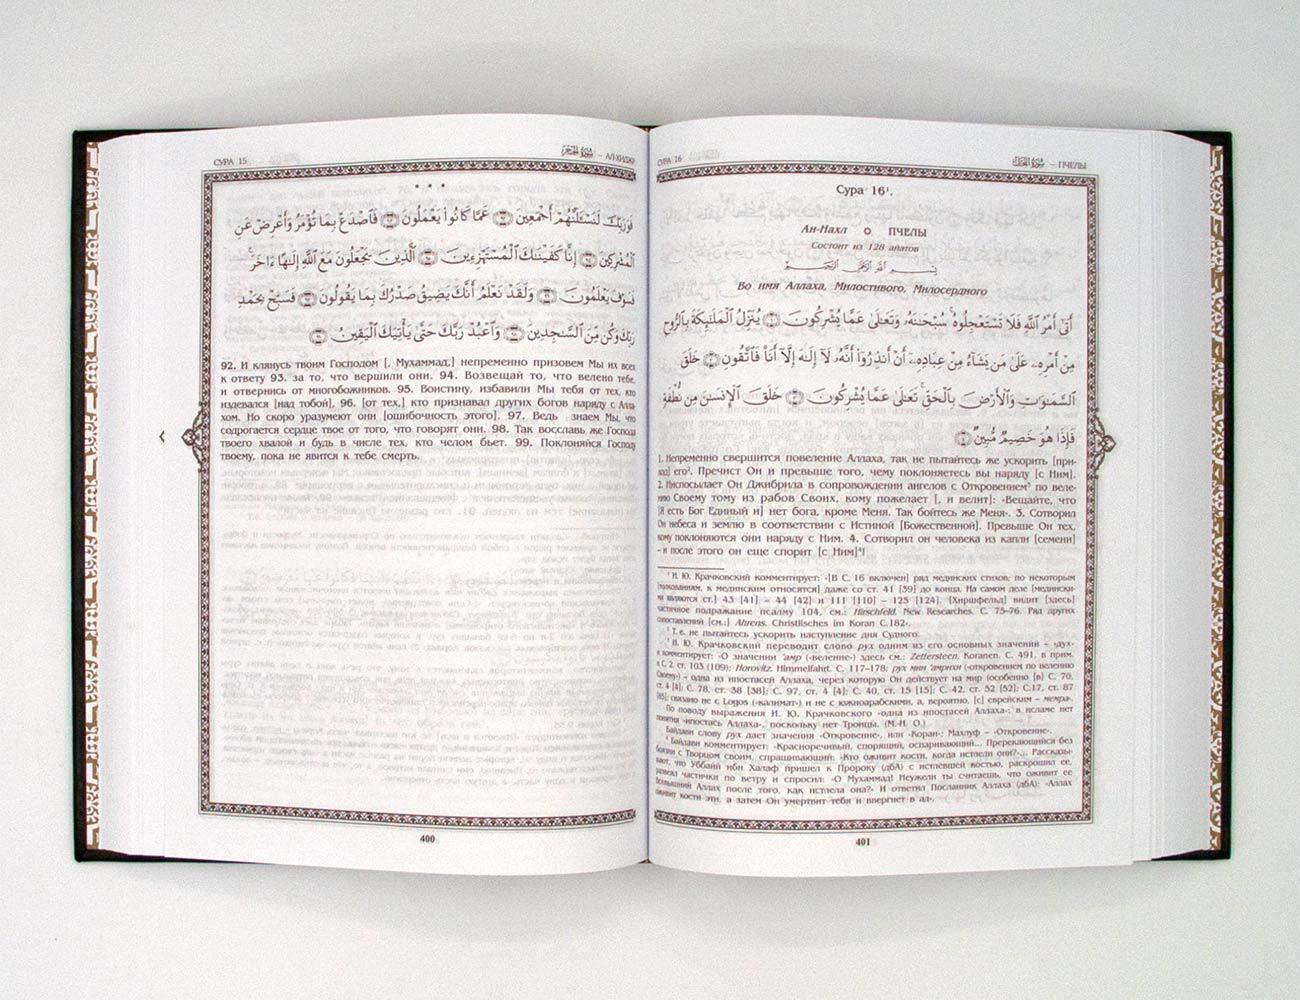 СУРА 15 سورة الحجر – АЛ-ХИДЖР
• • •
فَوَرَبِّكَ لَنَسْـَٔلَنَّهُمْ أَجْمَعِينَ ٩٢ عَمَّا كَانُوا۟ يَعْمَلُونَ ٩٣ فَٱصْدَعْ بِمَا تُؤْمَرُ وَأَعْرِضْ عَنِ
ٱلْمُشْرِكِينَ ٩٤ إِنَّا كَفَيْنَٰكَ ٱلْمُسْتَهْزِءِينَ ٩٥ ٱلَّذِينَ يَجْعَلُونَ مَعَ ٱللَّهِ إِلَٰهًا ءَاخَرَ
فَسَوْفَ يَعْلَمُونَ ٩٦ وَلَقَدْ نَعْلَمُ أَنَّكَ يَضِيقُ صَدْرُكَ بِمَا يَقُولُونَ ٩٧ فَسَبِّحْ بِحَمْدِ
رَبِّكَ وَكُن مِّنَ ٱلسَّٰجِدِينَ ٩٨ وَٱعْبُدْ رَبَّكَ حَتَّىٰ يَأْتِيَكَ ٱلْيَقِينُ ٩٩
92. И клянусь твоим Господом [, Мухаммад,] непременно призовем Мы их всех
к ответу 93. за то, что вершили они. 94. Возвещай то, что велено тебе,
и отвернись от многобожников. 95. Воистину, избавили Мы тебя от тех, кто
издевался [над тобой], 96. [от тех,] кто признавал других богов наряду с Алла-
хом. Но скоро уразумеют они [ошибочность этого]. 97. Ведь знаем Мы, что
содрогается сердце твое от того, что говорят они. 98. Так восславь же Господа
твоего хвалой и будь в числе тех, кто челом бьет. 99. Поклоняйся Господу
твоему, пока не явится к тебе смерть.
400
СУРА 16 سورة النحل – ПЧЕЛЫ
Сура 16¹.
Ан-Нахл ПЧЕЛЫ
Состоит из 128 айатов
بِسْمِ ٱللَّهِ ٱلرَّحْمَٰنِ ٱلرَّحِيمِ
Во имя Аллаха, Милостивого, Милосердного
أَتَىٰٓ أَمْرُ ٱللَّهِ فَلَا تَسْتَعْجِلُوهُ سُبْحَٰنَهُۥ وَتَعَٰلَىٰ عَمَّا يُشْرِكُونَ ١ يُنَزِّلُ ٱلْمَلَٰٓئِكَةَ بِٱلرُّوحِ
مِنْ أَمْرِهِۦ عَلَىٰ مَن يَشَآءُ مِنْ عِبَادِهِۦٓ أَنْ أَنذِرُوٓا۟ أَنَّهُۥ لَآ إِلَٰهَ إِلَّآ أَنَا۠ فَٱتَّقُونِ ٢ خَلَقَ
ٱلسَّمَٰوَٰتِ وَٱلْأَرْضَ بِٱلْحَقِّ تَعَٰلَىٰ عَمَّا يُشْرِكُونَ ٣ خَلَقَ ٱلْإِنسَٰنَ مِن نُّطْفَةٍ
فَإِذَا هُوَ خَصِيمٌ مُّبِينٌ ٤
1. Непременно свершится повеление Аллаха, так не пытайтесь же ускорить [при-
ход] его². Пречист Он и превыше того, чему поклоняетесь вы наряду [с Ним].
2. Ниспосылает Он Джибрила в сопровождении ангелов с Откровением³ по веле-
нию Своему тому из рабов Своих, кому пожелает [, и велит]: «Вещайте, что
[Я есть Бог Единый и] нет бога, кроме Меня. Так бойтесь же Меня». 3. Сотворил
Он небеса и землю в соответствии с Истиной [Божественной]. Превыше Он тех,
кому поклоняются они наряду с Ним. 4. Сотворил он человека из капли [семени]
– и после этого он еще спорит [с Ним]⁴!
¹ И. Ю. Крачковский комментирует: «[В С. 16 включен] ряд мединских стихов: по некоторым
[толкованиям, к мединским относятся] даже со ст. 41 [39] до конца. На самом деле [медински-
ми являются ст.] 43 [41] – 44 [42] и 111 [110] – 125 [124]. [Хиршфельд] видит [здесь]
частичное подражание псалму 104, см.: Hirschfeld. New Researches. С. 75-76. Ряд других
сопоставлений [см.:] Ahrens. Christlisches im Koran С.182».
² Т. е. не пытайтесь ускорить наступление дня Судного.
³ И. Ю. Крачковский переводит слово рух одним из его основных значений – «дух»
и комментирует: «О значении 'амр («веление») здесь см.: Zettersteen. Koranen. С. 491, в прим.
к С. 2, ст. 103 (109); Horovitz. Himmelfahrt. С. 117–178; рух мин 'амрихи («откровение по велению
Своему») – одна из ипостасей Аллаха, через которую Он действует на мир (особенно [в] С. 70,
ст. 4 [4]; С. 78, ст. 38 [38]; С. 97, ст. 4 [4]; С. 40, ст. 15 [15]; С. 42, ст. 52 [52]; С.17, ст. 87
[85]; связано не с Logos («калимат») и не с южноарабскими, а, вероятно, [с] еврейским – мемра».
По поводу выражения И. Ю. Крачковского «одна из ипостасей Аллаха»: в исламе нет
понятия «ипостась Аллаха», поскольку нет Троицы. (М.-Н. О.)
Байдави слову рух дает значения «Откровение», или «Коран»; Махлуф – «Откровение».
⁴ Байдави комментирует: «Красноречивый, спорящий, оспаривающий... Пререкающийся без
боязни с Творцом своим, спрашивающий: «Кто оживит кости, когда истлели они?»... Рассказы-
вают, что Уббайй ибн Халаф пришел к Пророку (дбАр) с истлевшей костью, раскрошил ее,
развеял частички по ветру и спросил: «О Мухаммад! Неужели ты считаешь, что оживит ее
Всевышний Аллах после того, как истлела она?» И ответил Посланник Аллаха (дбАр): «Аллах
оживит кости эти, а затем Он умертвит тебя и ввергнет в ад».
401